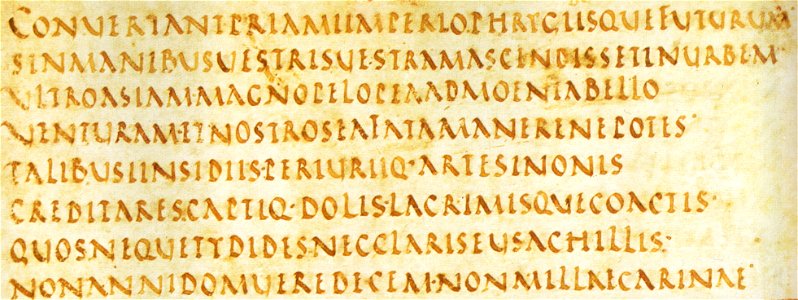 CONUERTANTPRIAMIIMPERIOPHRYGIISQUEFUTURUM
SINMANIBUSUESTRISUESTRAMASCENDISSETINURBEM
ULTROASIAMMAGNOPELOPEAADMOENIABELLO
UENTURAM·ETNOSTROSEAFATAMANERENEPOTES·
TALIBUSIINSIDIIS·PERIURIIQ·ARTESINONIS
CREDITARES·CAPTIQ·DOLIS·LACRIMISQUECOACTIS·
QUOSNEQUETYDIDESNECCLARISEUSACHILLIS·
NONANNIDOMUEREDECEM·NONMILLAECARINAE·